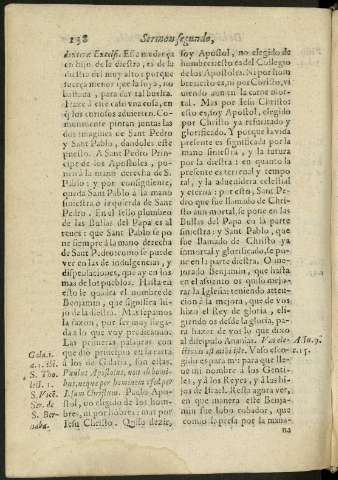 138 Sermon segundo,
dextræ Excelsi. Esse mudança
en hijo de la diestra, es de la
diestra del muy alto: porque
fuerça menor que la suya, no
bastara, para dar tal buelta.
Haze à este caso vna cosa, en
q̃ los curiosos aduierten. Co-
munmente pintan juntas las
dos imagines de Sant Pedro
y Sant Pablo, dandoles este
puesto. A Sant Pedro Prin-
cipe de los Apostoles, po-
nen à la mano derecha de S.
Pablo: y por consiguiente,
queda Sant Pablo à la mano
siniestra o izquierda de Sant
Pedro. En el sello plumbeo
de las Bullas del Papa es al
reues: que Sant Pablo se po
ne siempre à la mano derecha
de Sant Pedro: como se puede
ver en las de indulgencias, y
dispensaciones, que ay en los
mas de los pueblos. Hasta en
esto le quadra el nombre de
Benjamin, que significa hi-
jo de la diestra. Mas sepamos
la razon, por ser muy llega-
da a lo que voy predicando.
Las primeras palabras con
que dio principio en la carta
à los de Galacia, son estas.
Paulus Apostolus, non ab homini-
bus, neque per hominem, sed per
Iesum Christum. Pablo Apos-
tol, no elegido de los hom-
bres, ni por hombre: mas por
Iesu Christo. Quiso dezir,
Gala. 1.
S. Tho.
lect. 1.
S. Vicẽ.
Ser. de
S. Ber-
naba.
soy Apostol, no elegido de
hombres: esto es del Collegio
de los Apostoles. Ni por hom
bre: esto es, ni por Christo, vi
uiendo aun en la carne mor-
tal. Mas por Iesu Christo:
esto es, soy Apostol, elegido
por Christo ya resuscitado y
glorificado. Y porque la vida
presente es significada por la
mano siniestra, y la futura
por la diestra: en quanto la
presente es terrenal y tempo
ral, y la aduenidera celestial
y eterna: por esto, Sant Pe-
dro que fue llamado de Chris-
to aun mortal, se pone en las
Bullas del Papa en la parte
siniestra: y Sant Pablo, que
fue llamado de Christo ya
immortal y glorificado, se po-
ne en la parte diestra. O me-
jorado Benjamin, que hasta
en el assiento os quiso mejo-
rar la Iglesia: teniendo atten-
cion à la mejora, que de vos
hizo el Rey de gloria, eli-
giendo os desde la gloria, pa-
ra hazer de vos lo que dixo
al discipulo Ananias. Vas ele-
ctionis est mihi iste. Vaso esco-
gido para los Gentiles,
y à los Reyes, y à los hi-
jos de Israel. Resta agora ver,
en que manera este Benja-
min fue lobo robador, que
come la presa por la maña-
Acto. 9.
na